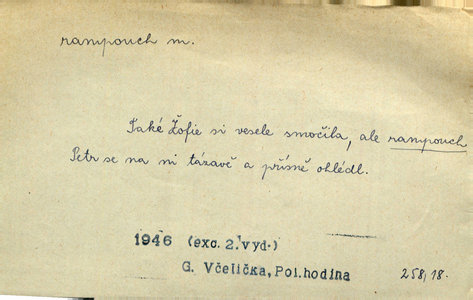 rampouch m.
Také Žofie si vesele smočila, ale rampouch
Petr se na ni tázavě a přísně ohlédl.
1946 (exc. 2. vyd.)
G. Včelička, Pol. hodina
258,18.